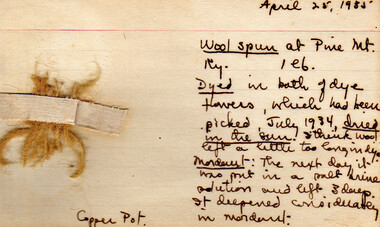 April 25, 1935
Wool spun at Pine Mt.
Ky. 1 lb.
Dyed in bath of dye
flowers, which had been
picked July 1934, dried
in the sun. I think wool
left a little too long in dye
Mordant: The next day it
was put in a salt brine
solution and left 3 days.
It deepened considerably
in mordant.
Copper Pot.